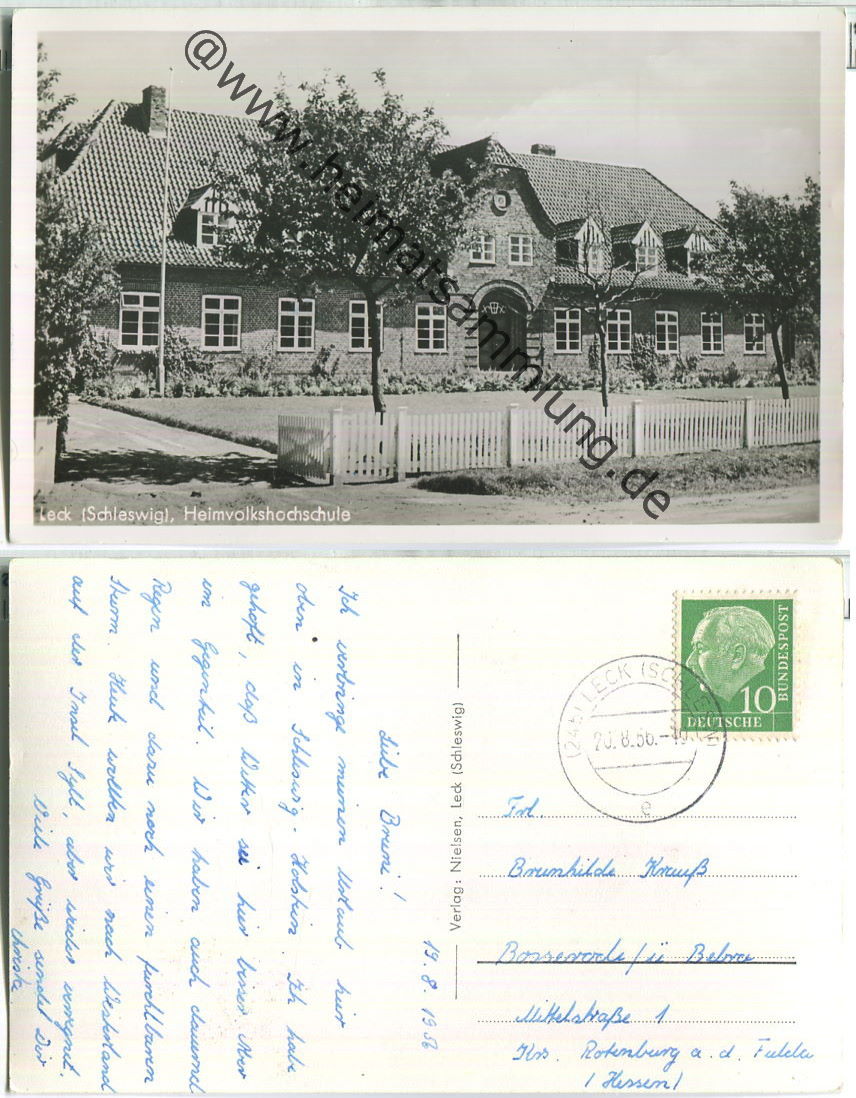 @www.heimatsammlung.de
Leck (Schleswig), Heimvolkshochschule
19.8.1956
Liebe Bruni!
Ich verbringe meinen Urlaub hier
oben in Schleswig-Holstein. Ich habe
gehofft, daß Wetter sei hier besser. Aber
im Gegenteil. Wir haben auch dauernd
Regen und dazu noch einen furchtbaren
Sturm. Heute wollten wir nach Westerland
auf der Insel Sylt, aber wieder verregnet.
Viele Grüße sendet Dir
Christa
Verlag: Nielsen, Leck (Schleswig)
10
DEUTSCHE
BUNDESPOST
(24b) LECK (SCHLESW)
20.8.56.-10
e
Frl.
Brunhilde Krauß
Bosserode/ü Bebra
Mittelstraße 1
Krs. Rotenburg a. d. Fulda
(Hessen)